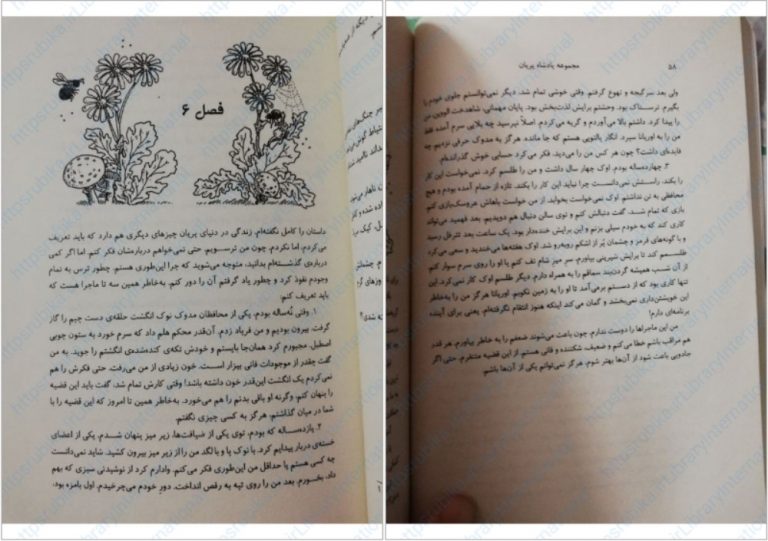 فصل ۶
داستان را کامل نگفته‌ام. زندگی در دنیای پریان چیزهای دیگری هم دارد که باید تعریف
می‌کردم، اما نکردم. چون من ترســویم. حتی نمی‌خواهم درباره‌شان فکر کنم. اما اگر کمی
درباره‌ی گذشــته‌ام بدانید، متوجه می‌شوید که چرا این‌طوری هستم. چطور ترس به تمام
وجودم نفوذ کرد و چطور یاد گرفتم آن را دور کنم. به‌خاطر همین سه تا ماجرا هست که
باید تعریف کنم:
۱. وقتی نُه‌ساله بودم، یکی از محافظان مدوک انگشت حلقه‌ی دست چپم را گاز
گرفت. بیرون بودیم و من فریاد زدم. آن‌قدر محکم هلم داد که سرم خورد به ستون چوبی
اصطبل. مجبورم کرد همان‌جا بایستم و خودش تکه‌ی کنده‌شده‌ی انگشتم را جوید. به من
گفت چقدر از موجودات فانی بیزار است. خون زیادی از من می‌رفت، حتی فکرش را هم
نمی‌کردم یک انگشت این‌قدر خون داشته باشد! وقتی کارش تمام شد، گفت باید این قضیه
را پنهان کنم، وگرنه او باقی بدنم را هم می‌خورد. به‌خاطر همین تا امروز که این قضیه را با
شما در میان گذاشتم، هرگز به کسی چیزی نگفتم.
۲. یازده‌ســاله که بودم، توی یکی از ضیافت‌ها، زیر میز پنهان شــدم. یکی از اعضای
خسته‌ی دربار پیدایم کرد. با نوک پا و با لگد من را از زیر میز بیرون کشید. شاید نمی‌دانست
چه کسی هستم یا حداقل من این‌طوری فکر می‌کنم. وادارم کرد از نوشیدنی سبزی که بهم
داد، بخــورم. بعد من را روی تپه به رقص انداخت. دورِ خودم می‌چرخیدم. اول بامزه بود،
۵۸
مجموعه پادشاه پریان
ولی بعد سرگیجه و تهوع گرفتم. وقتی خوشی تمام شد، دیگر نمی‌توانستم جلوی خودم را
بگیرم. ترســناک بود. وحشتم برایش لذت‌بخش بود. پایان مهمانی، شاهدخت الووین من
را پیدا کرد. داشتم بالا می‌آوردم و گریه می‌کردم. اصلاً نپرسید چه بلایی سرم آمده فقط
من را به اوریانا سپرد. انگار پالتویی هستم که جا مانده. هرگز به مدوک حرفی نزدیم. چه
فایده‌ای داشت؟ چون هر کس من را می‌دید، فکر می‌کرد حسابی خوش گذرانده‌ام.
۳. چهارده‌ساله بودم. اوک چهار سال داشت و من را طلسم کرد. نمی‌خواست این کار
را بکند. راســتش نمی‌دانســت چرا نباید این کار را بکند. تازه از حمام آمده بودم و هیچ
محافظی به تن نداشتم. اوک نمی‌خواست بخوابد. از من خواست باهاش عروسک‌بازی کنم.
بازی که تمام شــد، گفت دنبالش کنم و توی سالن دنبال هم دویدیم. بعد فهمید می‌تواند
کاری کند که به خودم سیلی بزنم و این برایش خنده‌دار بود. یک ساعت بعد تترفل رسید
و با گونه‌های قرمز و چشمان پُر از اشکم روبه‌رو شد. اوک هفته‌ها می‌خندید و سعی می‌کرد
طلســمم کند تا برایش شیرینی بیاورم، سر میز شام تف کنم یا او را روی سرم سوار کنم.
از آن شــب همیشه گردنبند سماقم را به همراه دارم. دیگر طلسم اوک کار نمی‌کرد. این
تنها کاری بود که از دستم برمی‌آمد تا او را به زمین نکوبم. اوریانا هرگز من را به‌خاطر
این خویشتن‌داری نمی‌بخشد و گمان می‌کند اینکه هنوز انتقام نگرفته‌ام، یعنی برای آینده
برنامه‌ای دارم!
من این ماجراها را دوست ندارم، چون باعث می‌شوند ضعفم به خاطر بیاورم. هر قدر
هم مراقب باشم خطا می‌کنم و ضعیف، شکننده و فانی هستم. از این قضیه متنفرم. حتی اگر
جادویی باعث شود از آن‌ها بهتر شوم، هرگز نمی‌توانم یکی از آن‌ها باشم.